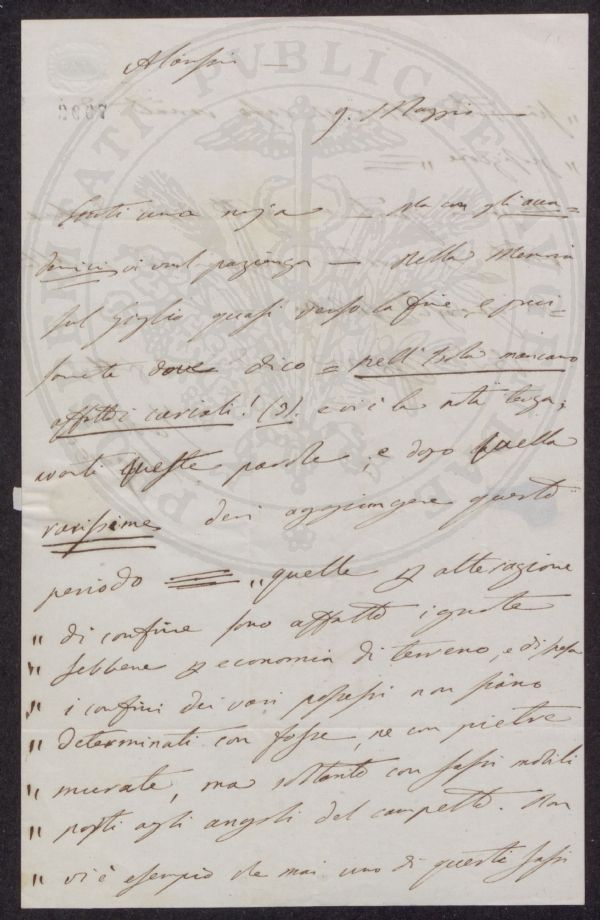 9. Maggio —
Senti una noja — Ma con gli acca=
demici ci vuol pazienza — Nella Memoria
sul Giglio quasi verso la fine, e preci=
samente dove dico = nell'Isola mancano
affatto i curiali! (3). e vi è la nota terza;
avanti queste parole, e dopo quella
rarissime devi aggiungere questo
periodo = „quelle p alterazione
„ di confine sono affatto ignote
„ sebbene p economia di terreno, e di spesa
„ i confini dei vari possessi non siano
„ determinati con fosse, ne con pietre
„ murate, ma soltanto con sassi mobili
„ posti agli angoli del campetto. Non
„ vi è esempio che mai uno di questi sassi